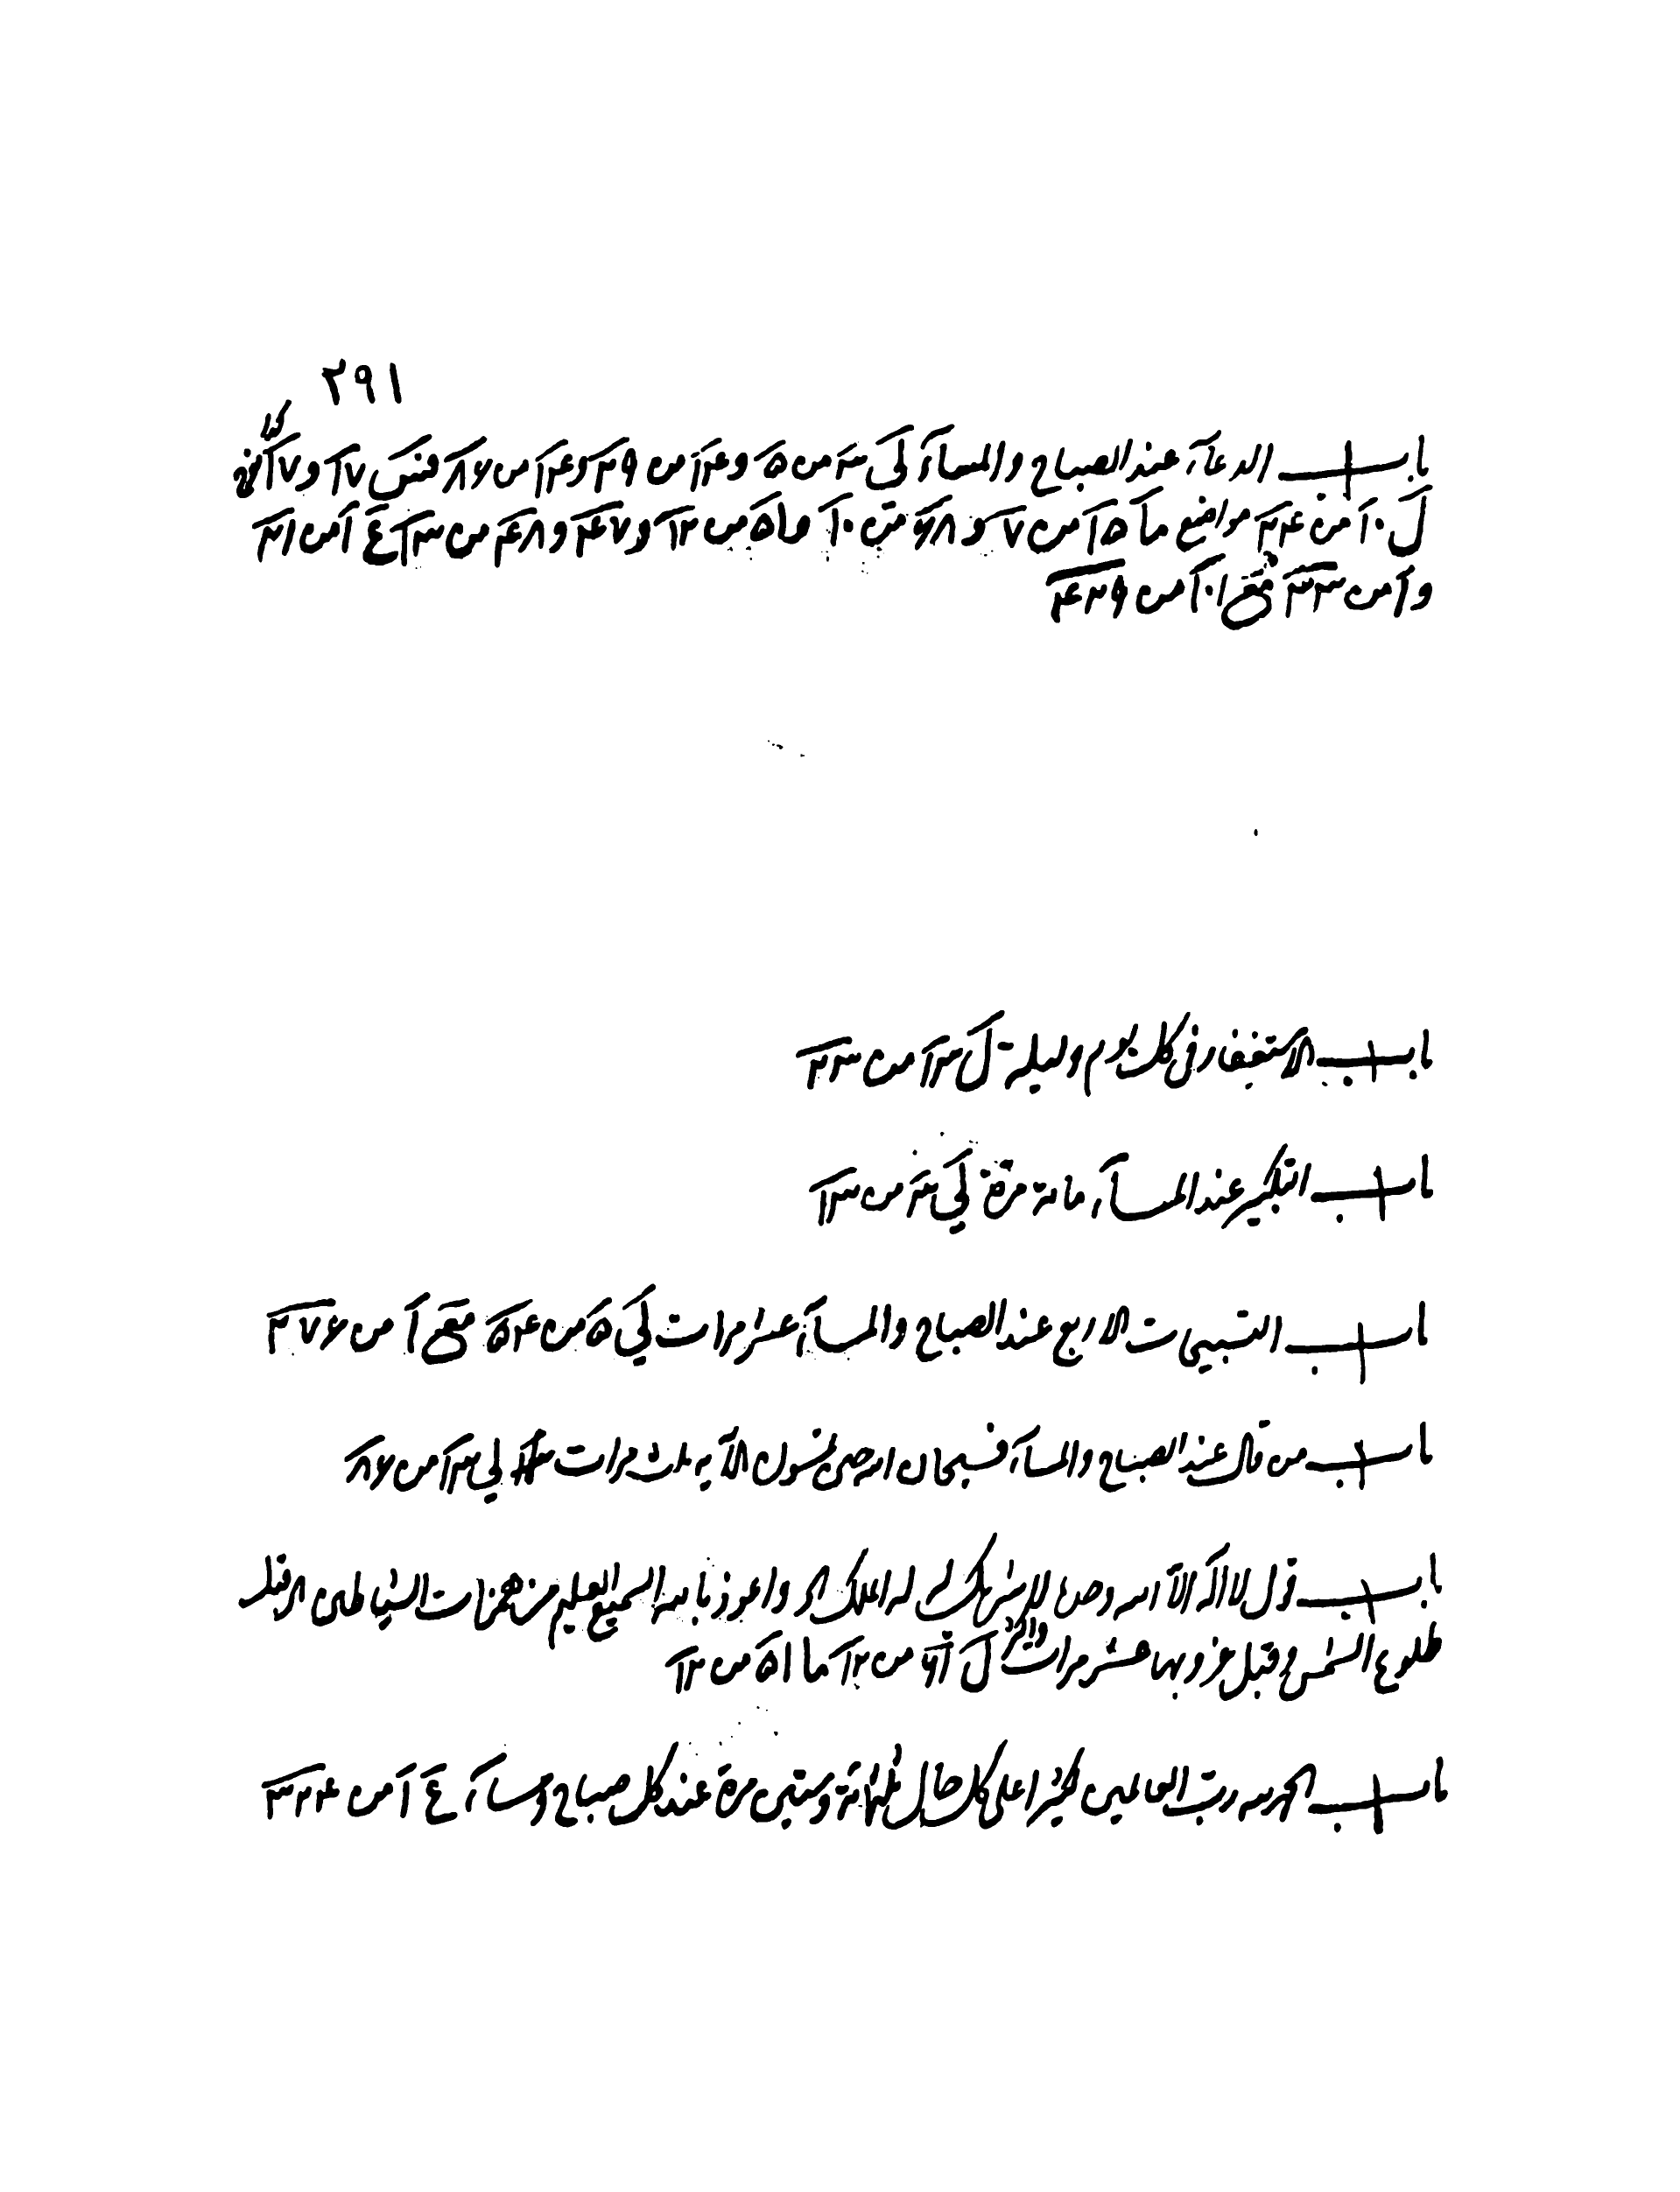 ٢٩١
باب الدعاء عند الصباح والمساء لى ٣ من ٥ و ١٤ من ٣٩ و ١٤ من ٨٦
ل ١٠ من ٢٤ مواضع ما ١٥ من ٧ و ٨ من ١٠ و ٥١ من ١٢ و ٤٧ و ٤٨ من ١٣ ع ١ من ٣١
و ١ من ٣٣ مع ١٠١ من ٤٣٩
باب الاستغفار فى كل يوم وليلة ل ١٣ من ٢٣
باب التكبير عند المساء مائة مرة لى ٣ من ١٣
باب التسبيحات الاربع عند الصباح والمساء عشر مرات لى ٥ من ٥٤ مع ١ من ٢٧٦
باب من قال عند الصباح والمساء فسبحان الله حين تمسون الآية ثلث مرات لى ١٣ من ٨٦
باب قول لا اله الا الله وحده لا شريك له له الملك الخ واعوذ بالله السميع العليم من همزات الشياطين الخ قبل
طلوع الشمس وقبل غروبها عشر مرات ل من ١٢ ما ٥١ من ١٢
باب الحمد لله رب العالمين كثيرا على كل حال ثلثمائة وستين مرة عند كل صباح ومساء ع ١ من ٣٢٤